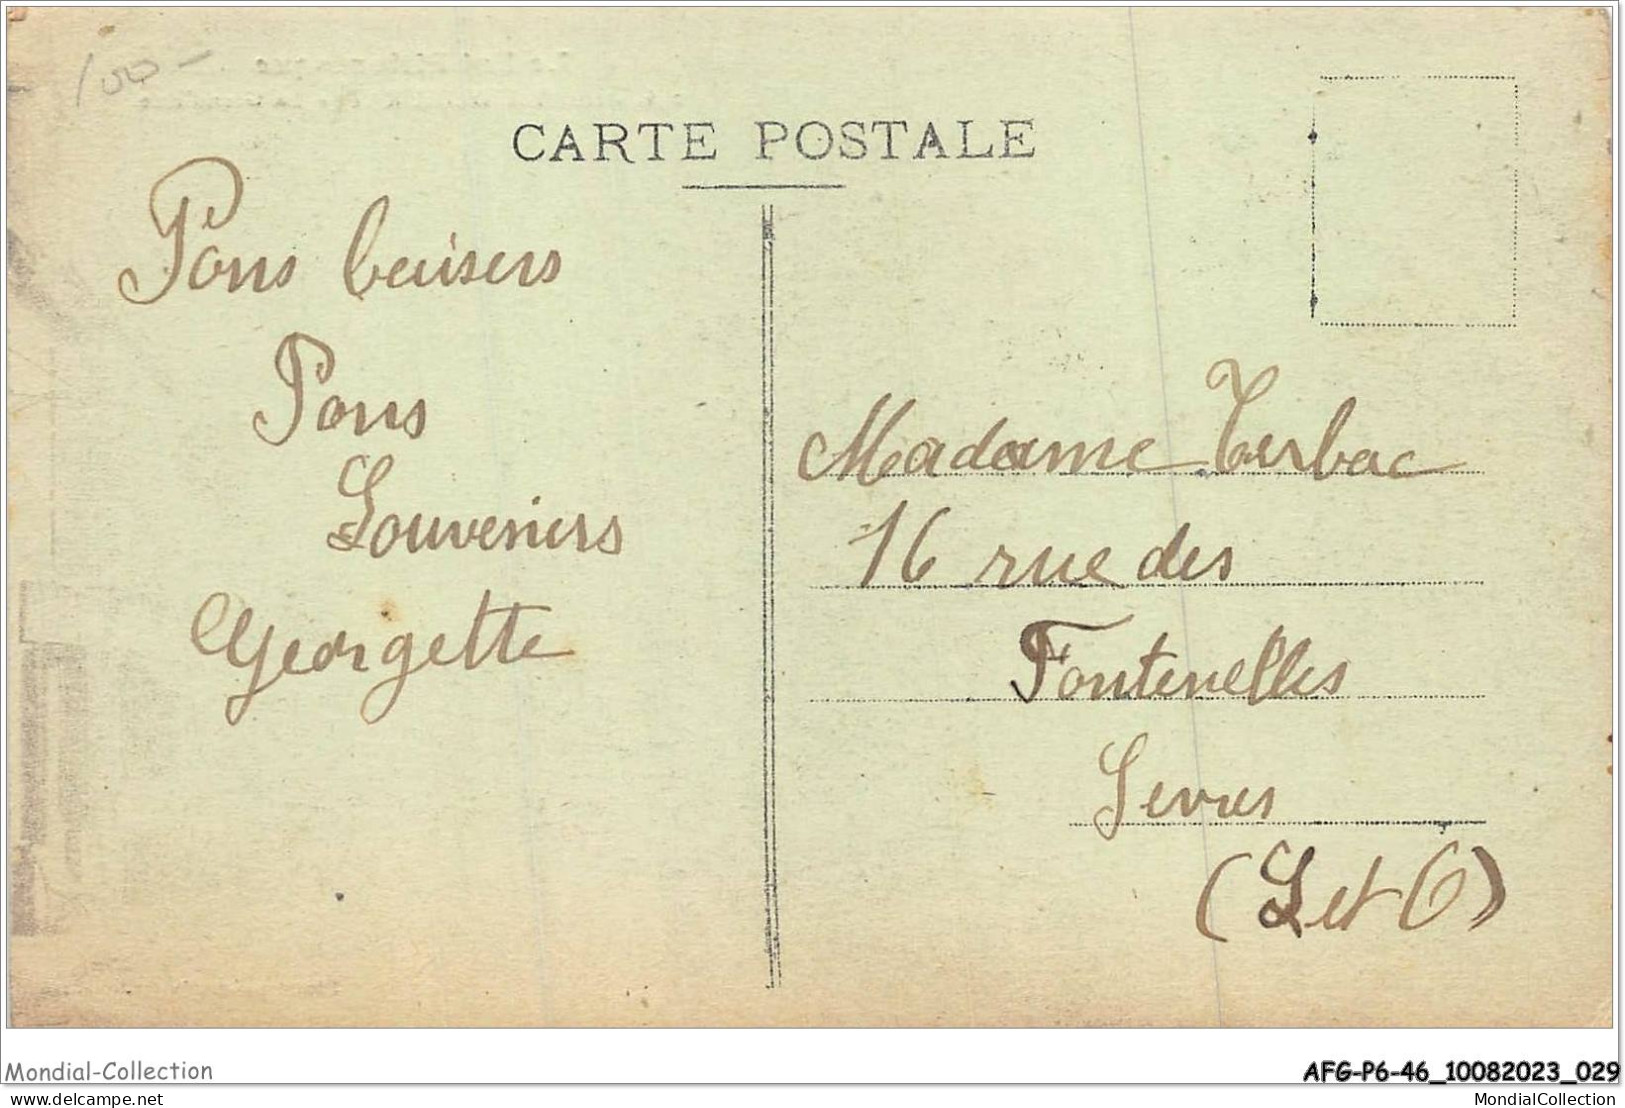 100 -
CARTE POSTALE
Bons baisers
Bons
Souveniers
Georgette
Madame Terbac
16 rue des
Fontenelles
Sevres
(S et O)
Mondial-Collection
AFG-P6-46_10082023_029
delcampe.net
MondialCollection